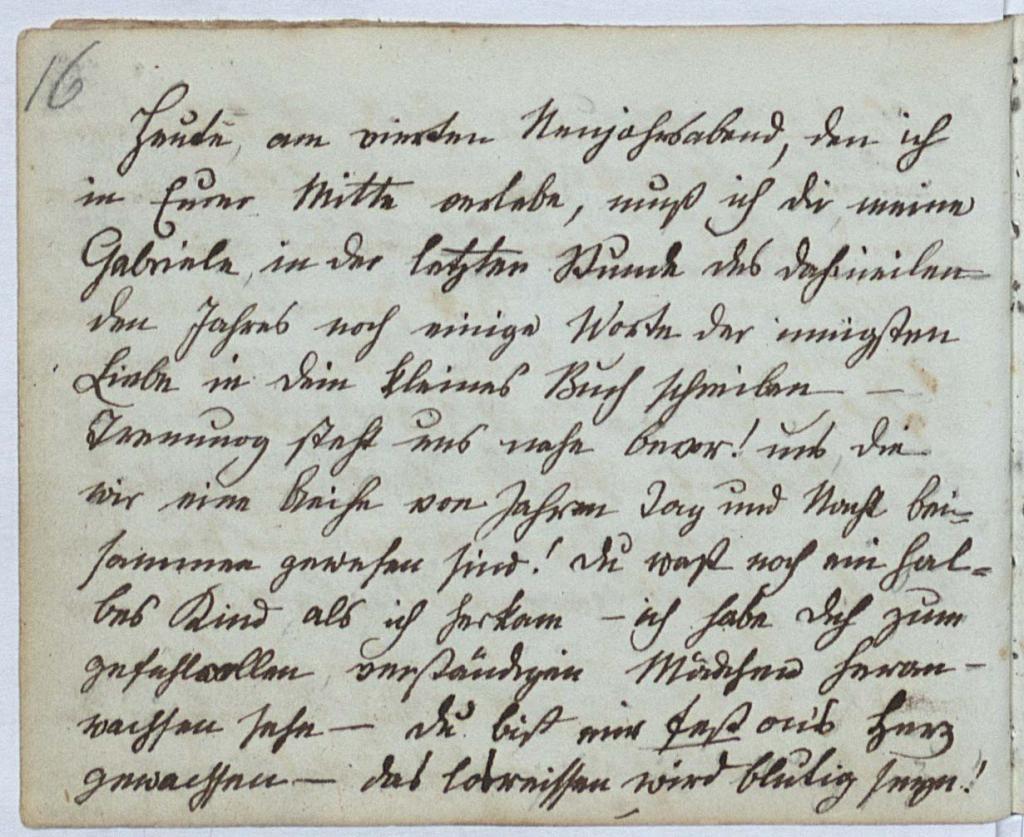 16
Heute, am vierten Neujahrsabend, den ich
in Eurer Mitte verlebe, muß ich dir meine
Gabriele, in der letzten Stunde des dahineilen-
den Jahres noch einige Worte der innigsten
Liebe in dein kleines Buch schreiben —
Trennung steht uns nahe bevor! uns, die
wir eine Reihe von Jahren Tag und Nacht bei-
sammen gewesen sind! Du warst noch ein hal-
bes Kind als ich herkam – ich habe dich zum
gefühlvollen, verständigen Mädchen heran-
wachsen sehn — Du bist mir fest an's Herz
gewachsen — das losreissen wird blutig seyn!